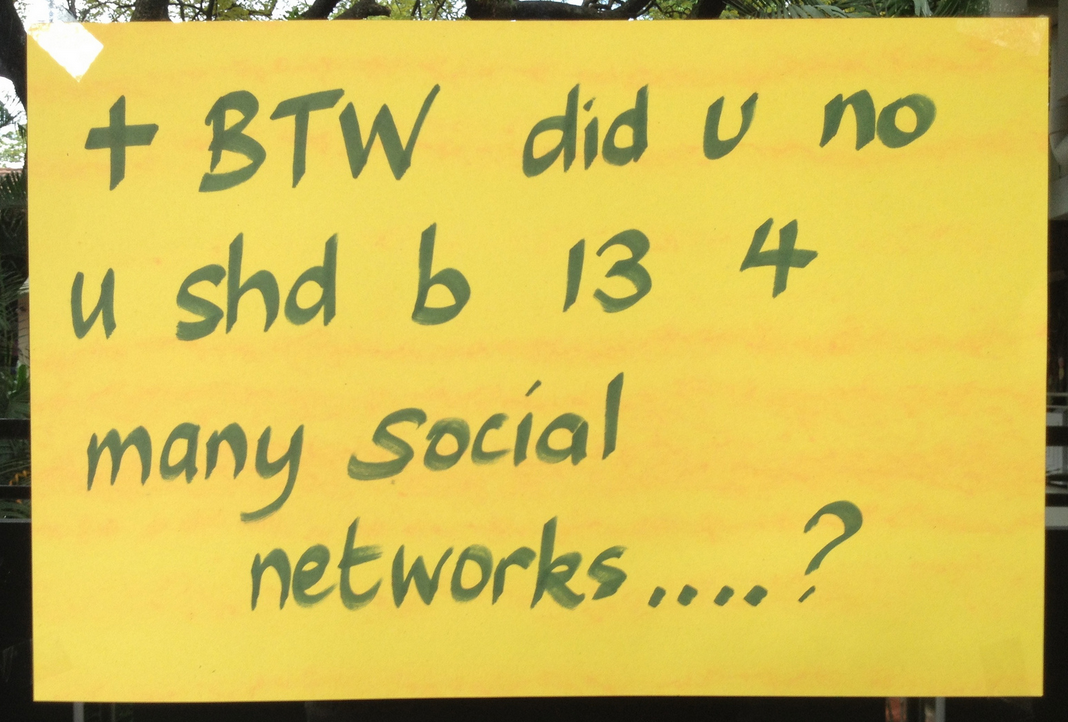 + BTW did u no
u shd b 13 4
many social
networks....?